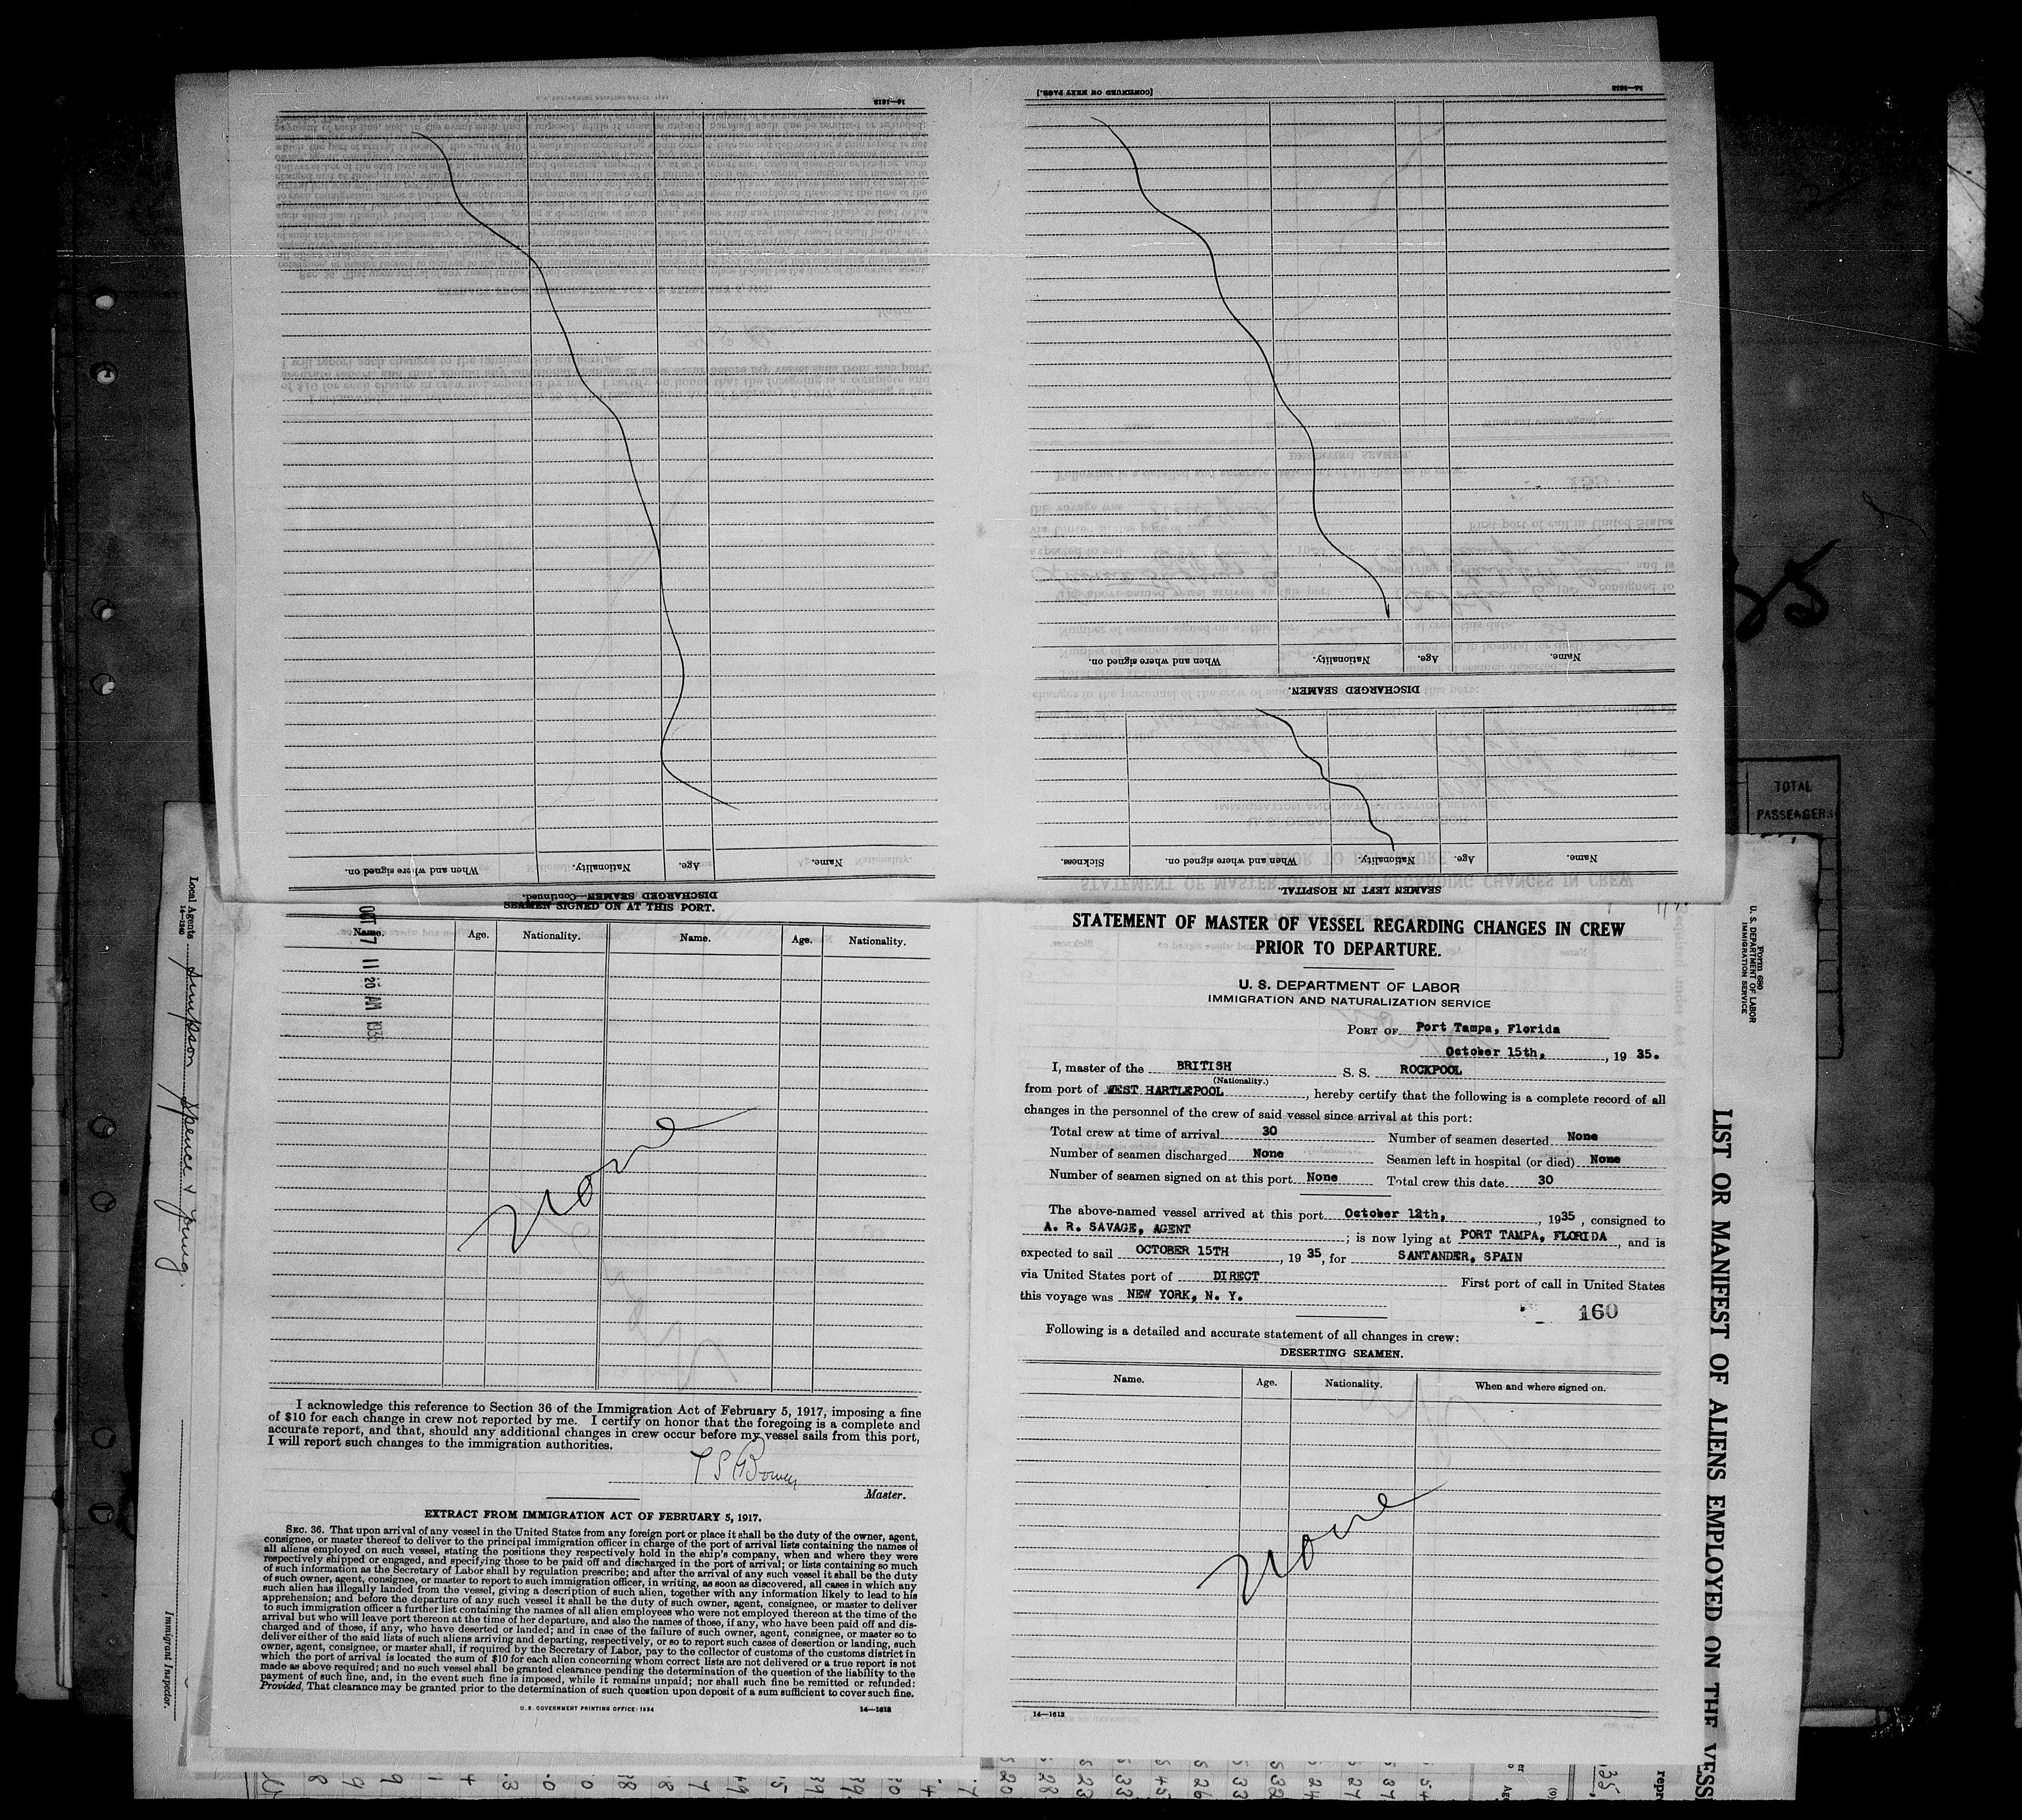 14—1613
DISCHARGED SEAMEN—Continued.
Name.
Age.
Nationality.
When and where signed on.
[CONTINUED ON NEXT PAGE.]
14—1613
SEAMEN LEFT IN HOSPITAL.
Name.
Age.
Nationality.
When and where signed on.
Sickness.
DISCHARGED SEAMEN.
Name.
Age.
Nationality.
When and where signed on.
TOTAL
PASSENGERS
SEAMEN SIGNED ON AT THIS PORT.
Name. Age. Nationality. Name. Age. Nationality.
OCT 17 11 20 AM 1935
None
I acknowledge this reference to Section 36 of the Immigration Act of February 5, 1917, imposing a fine
of $10 for each change in crew not reported by me. I certify on honor that the foregoing is a complete and
accurate report, and that, should any additional changes in crew occur before my vessel sails from this port,
I will report such changes to the immigration authorities.
Master.
EXTRACT FROM IMMIGRATION ACT OF FEBRUARY 5, 1917.
SEC. 36. That upon arrival of any vessel in the United States from any foreign port or place it shall be the duty of the owner, agent,
consignee, or master thereof to deliver to the principal immigration officer in charge of the port of arrival lists containing the names of
all aliens employed on such vessel, stating the positions they respectively hold in the ship's company, when and where they were
respectively shipped or engaged, and specifying those to be paid off and discharged in the port of arrival; or lists containing so much
of such information as the Secretary of Labor shall by regulation prescribe; and after the arrival of any such vessel it shall be the duty
of such owner, agent, consignee, or master to report to such immigration officer, in writing, as soon as discovered, all cases in which any
such alien has illegally landed from the vessel, giving a description of such alien, together with any information likely to lead to his
apprehension; and before the departure of any such vessel it shall be the duty of such owner, agent, consignee, or master to deliver
to such immigration officer a further list containing the names of all alien employees who were not employed thereon at the time of the
arrival but who will leave port thereon at the time of her departure, and also the names of those, if any, who have been paid off and dis-
charged and of those, if any, who have deserted or landed; and in case of the failure of such owner, agent, consignee, or master so to
deliver either of the said lists of such aliens arriving and departing, respectively, or so to report such cases of desertion or landing, such
owner, agent, consignee, or master shall, if required by the Secretary of Labor, pay to the collector of customs of the customs district in
which the port of arrival is located the sum of $10 for each alien concerning whom correct lists are not delivered or a true report is not
made as above required; and no such vessel shall be granted clearance pending the determination of the question of the liability to the
payment of such fine, and, in the event such fine is imposed, while it remains unpaid; nor shall such fine be remitted or refunded:
Provided, That clearance may be granted prior to the determination of such question upon deposit of a sum sufficient to cover such fine.
U. S. GOVERNMENT PRINTING OFFICE: 1934 14—1613
STATEMENT OF MASTER OF VESSEL REGARDING CHANGES IN CREW
PRIOR TO DEPARTURE.
U. S. DEPARTMENT OF LABOR
IMMIGRATION AND NATURALIZATION SERVICE
PORT OF Port Tampa, Florida
October 15th, , 19 35.
I, master of the BRITISH S. S. ROCKPOOL
(Nationality.)
from port of WEST HARTLEPOOL , hereby certify that the following is a complete record of all
changes in the personnel of the crew of said vessel since arrival at this port:
Total crew at time of arrival 30 Number of seamen deserted None
Number of seamen discharged None Seamen left in hospital (or died) None
Number of seamen signed on at this port None Total crew this date 30
The above-named vessel arrived at this port October 12th, , 1935 , consigned to
A. R. SAVAGE, AGENT ; is now lying at PORT TAMPA, FLORIDA , and is
expected to sail OCTOBER 15TH , 19 35, for SANTANDER, SPAIN
via United States port of DIRECT First port of call in United States
this voyage was NEW YORK, N. Y.
160
Following is a detailed and accurate statement of all changes in crew:
DESERTING SEAMEN.
Name. Age. Nationality. When and where signed on.
None
14—1613
Local Agents Simpson Spence & Young.
14—1240
Immigrant Inspector.
Form 680
U. S. DEPARTMENT OF LABOR
IMMIGRATION SERVICE
LIST OR MANIFEST OF ALIENS EMPLOYED ON THE VESS